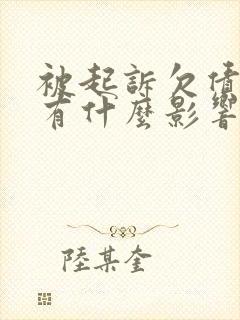 被起訴欠債
有什麼影響
陸某奎